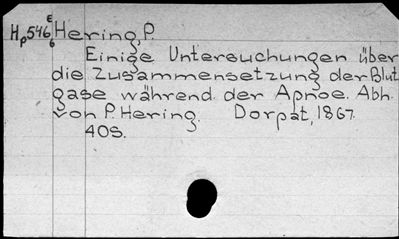 Hp546 E6 Hering, P.
Einige Untersuchungen über
die Zusammensetzung der Blut
gase während der Apnoe. Abh.
von P. Hering. Dorpat, 1867.
40S.